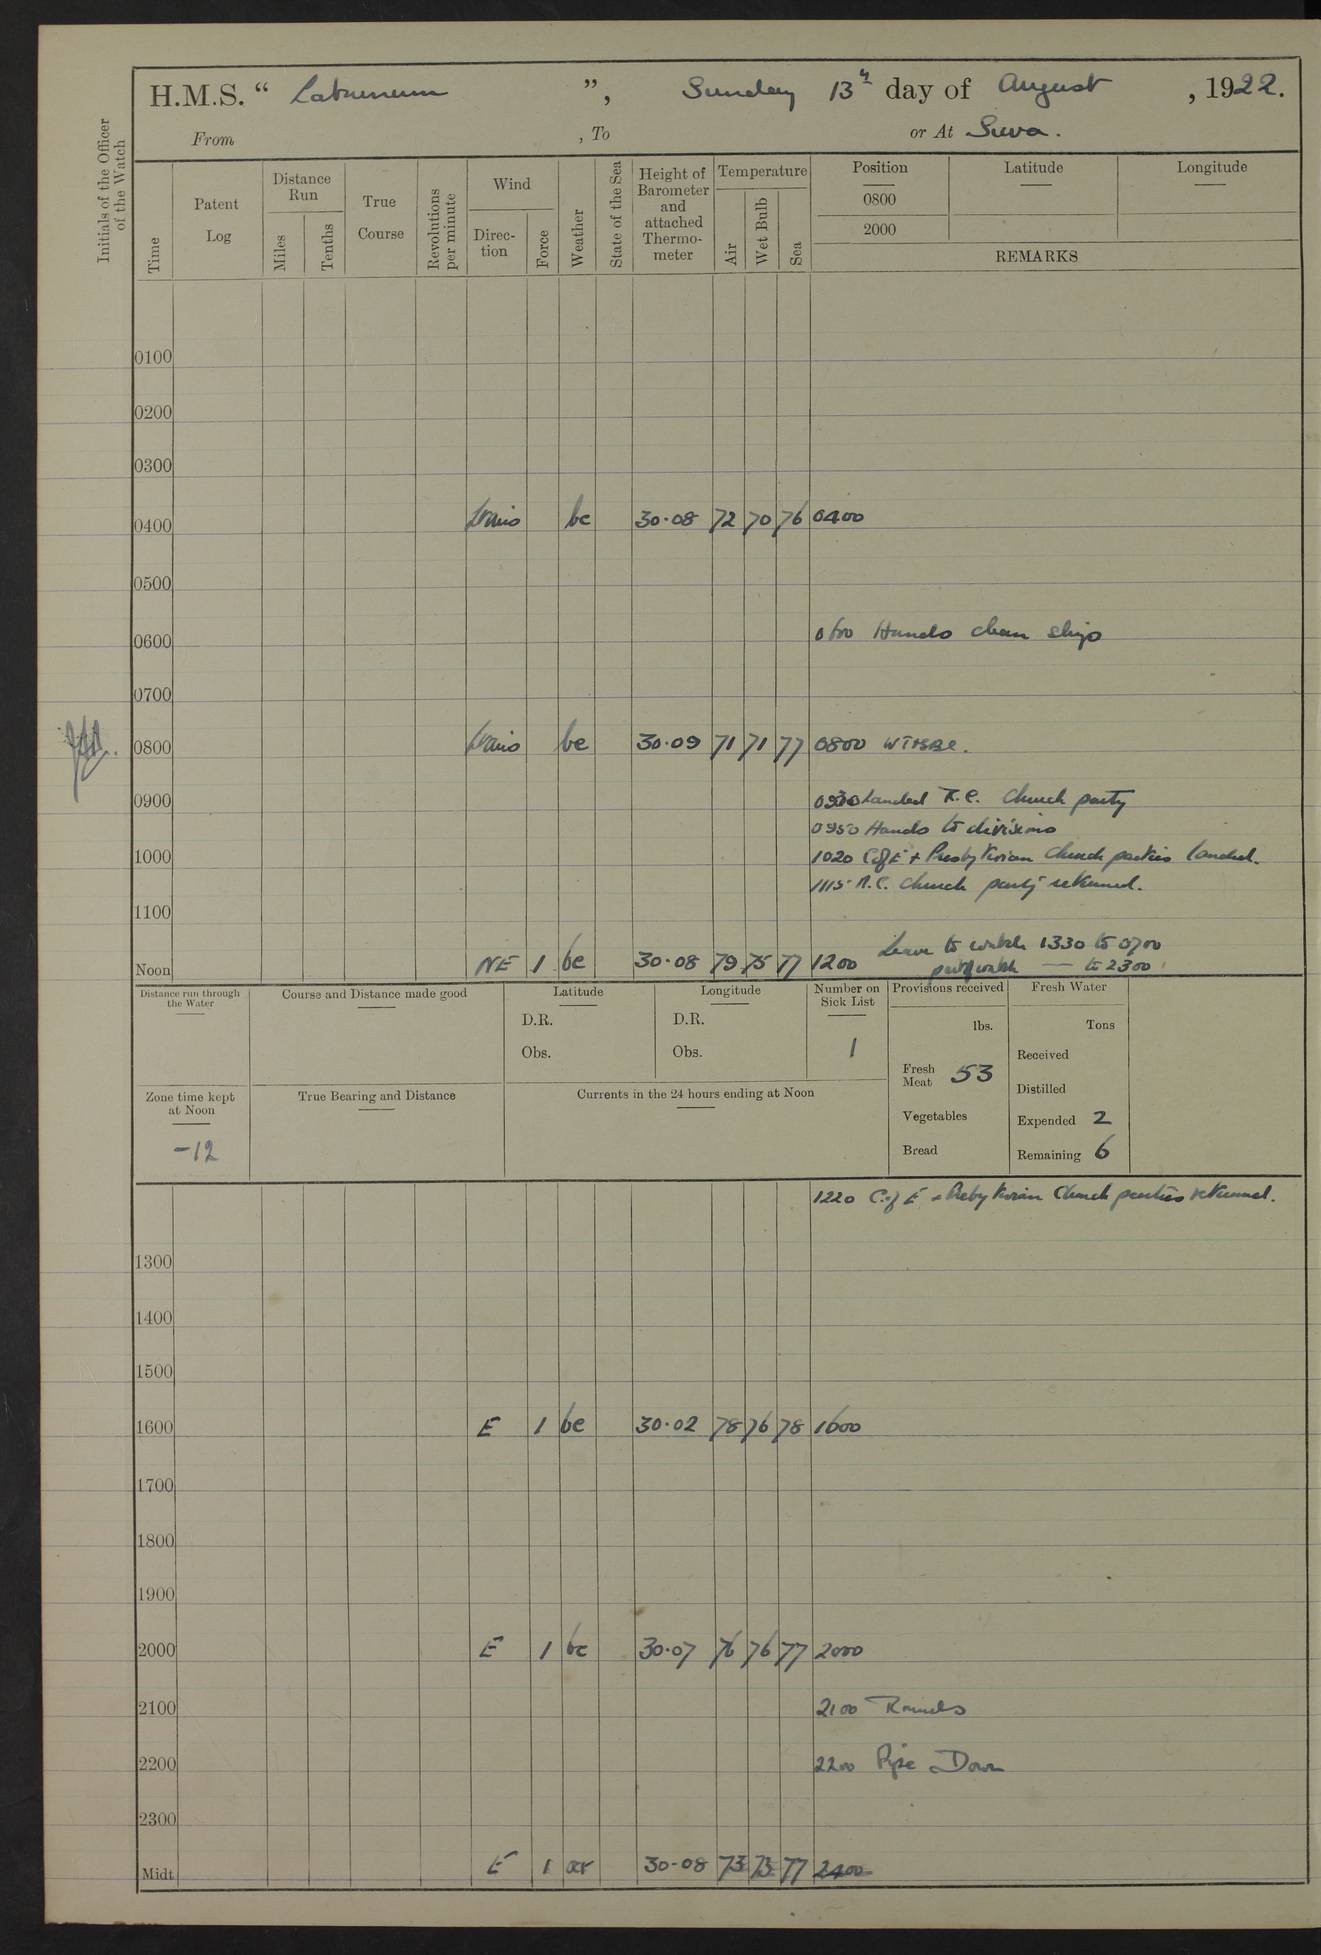 H.M.S. “ Laburnum ”, Sunday 13th day of August , 1922.
From , To or At Suva.
Initials of the Officer of the Watch
Time
Patent Log
Distance Run
Miles
Tenths
True Course
Revolutions per minute
Wind
Direc- tion
Force
Weather
State of the Sea
Height of Barometer and attached Thermo- meter
Temperature
Air
Wet Bulb
Sea
Position
0800
2000
Latitude
Longitude
REMARKS
0100
0200
0300
0400 bc 30·08 72 70 76 0400
0500
0600 0600 Hands clean ship
0700
0800 bc 30·09 71 71 77 0800
0900 0930 Landed R.C. Church party
0950 Hands to divisions
1000 1020 C of E + Presbyterian Church parties landed.
1115 R.C. Church party returned.
1100
Leave to watch 1330 to 0700
Noon NE 1 bc 30·08 79 75 77 1200 part watch — to 2300
Distance run through the Water
Course and Distance made good
Latitude
D.R.
Obs.
Longitude
D.R.
Obs.
Number on Sick List
1
Provisions received
lbs.
Fresh Meat 53
Vegetables
Bread
Fresh Water
Tons
Received
Distilled
Expended 2
Remaining 6
Zone time kept at Noon
-12
True Bearing and Distance
Currents in the 24 hours ending at Noon
1220 C of E + Presbyterian Church parties returned.
1300
1400
1500
1600 E 1 bc 30·02 78 76 78 1600
1700
1800
1900
2000 E 1 bc 30·07 76 76 77 2000
2100 2100 Rounds
2200 2200 Pipe Down
2300
Midt E 1 or 30·08 73 73 77 2400